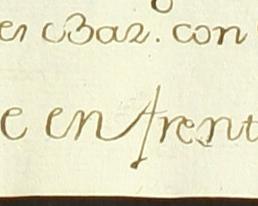 es Baz. con
e en frent